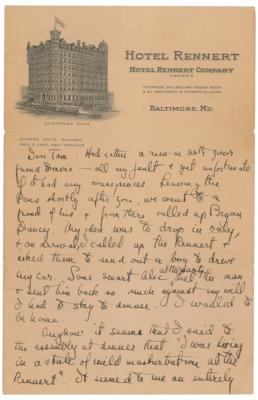 HOTEL RENNERT
HOTEL RENNERT COMPANY
OWNERS
FIREPROOF BUILDING AND ENGINE ROOM
& ALL MACHINERY IN SEPARATE BUILDING
BALTIMORE, MD.
EUROPEAN PLAN
EDWARD DAVIS, MANAGER
Dear Tom: Had rather a run-in with your
friend — all my fault & yet unfortunate
if it had any consequences. Leaving the
Poes shortly after you, we went to a
friend of his & from there called up Bryan
Dancy. My idea was to drop in only,
& on arrival, I called up the Rennert &
asked them to send out a boy to drive
my car. Some smart alec at the party met the man
& sent him back so much against my will
I had to stay to dinner. I wanted to
be home.
Anyhow it seems that I said to
the assembly at dinner that "I was living
in a state of mild masturbation at the
Rennert". It seemed to me an entirely